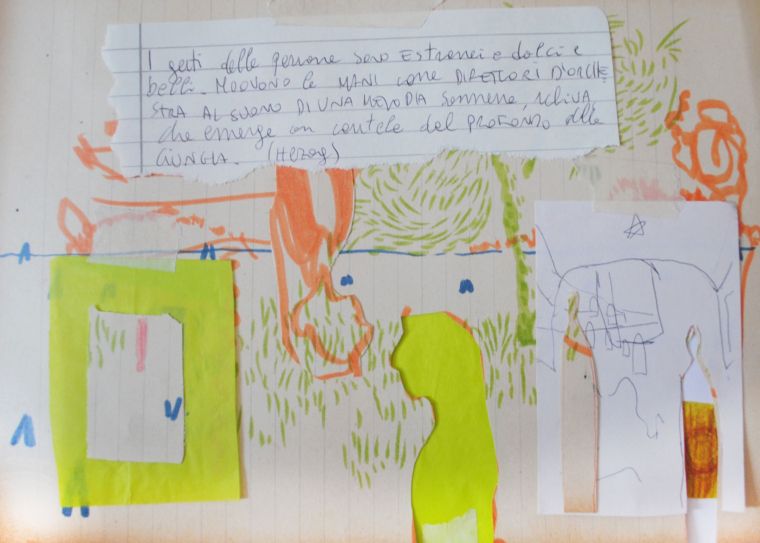 I gesti delle persone sono Estranei e dolci e
belli. MUOVONO le MANI come DIRETTORI D'ORCHE
STRA AL SUONO DI UNA MELODIA sommessa, schiva,
che emerge con cautela dal PROFONDO della
GIUNGLA. (Herzog)